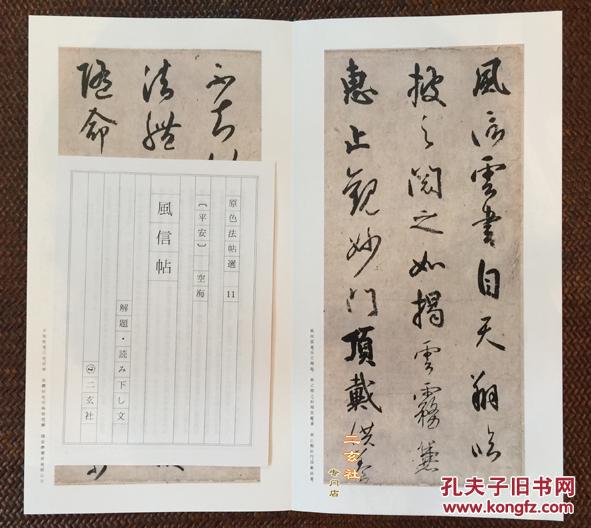 風信雲書自天翔臨
披之閱之如揭雲霧兼
惠止觀妙門頂戴供養
不知
法體
隨命
原色法帖選 11
〔平安〕 空海
風信帖
解題・読み下し文
二玄社
二玄社
专门店
孔夫子旧书网
www.kongfz.com